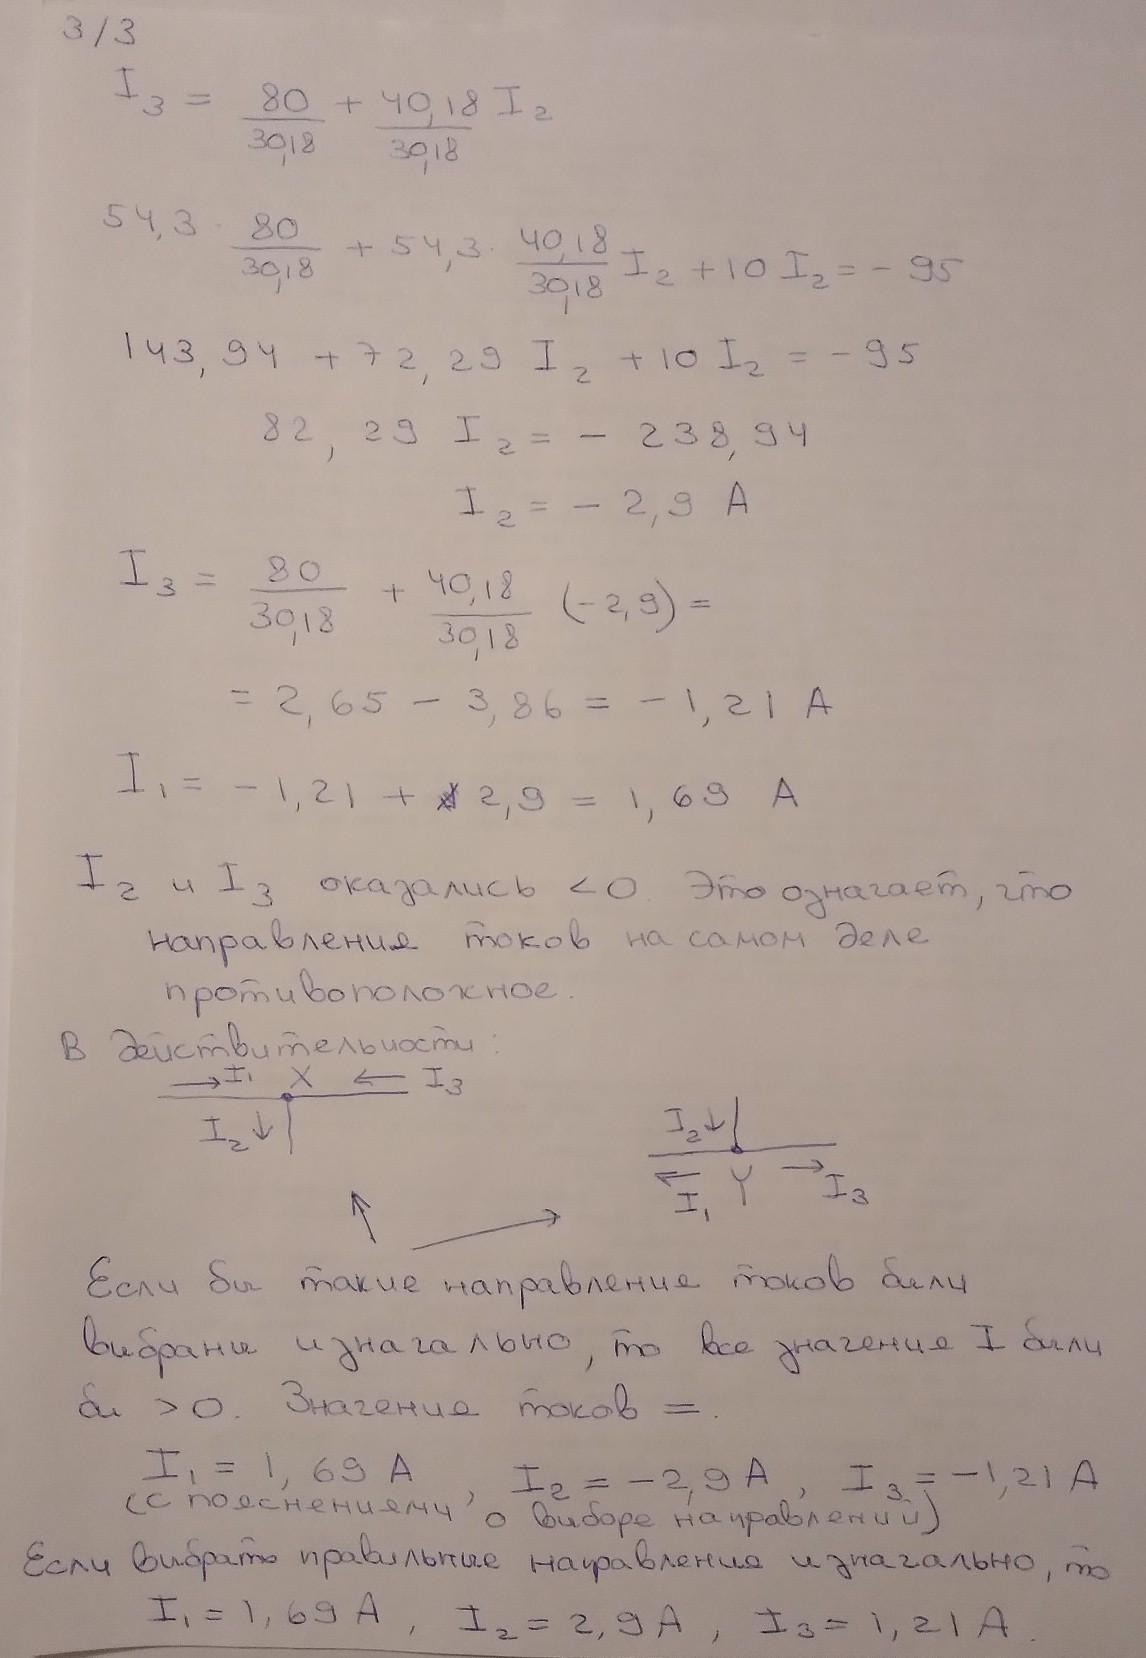 3/3
I₃ = 80/30,18 + 40,18/30,18 I₂
54,3 · 80/30,18 + 54,3 · 40,18/30,18 I₂ + 10 I₂ = - 95
143,94 + 72,29 I₂ + 10 I₂ = - 95
82,29 I₂ = - 238,94
I₂ = - 2,9 A
I₃ = 80/30,18 + 40,18/30,18 (-2,9) =
= 2,65 - 3,86 = - 1,21 A
I₁ = - 1,21 + 2,9 = 1,69 A
I₂ и I₃ оказались < 0. Это означает, что
направления токов на самом деле
противоположное.
В действительности:
→ I₁ X ← I₃
I₂ ↓
I₂ ↓
← I₁ Y → I₃
Если бы такие направление токов были
выбраны изначально, то все значение I были
бы > 0. Значение токов =.
I₁ = 1,69 A, I₂ = -2,9 A, I₃ = -1,21 A
(с пояснениями о выборе направлений)
Если выбрать правильные направления изначально, то
I₁ = 1,69 A, I₂ = 2,9 A, I₃ = 1,21 A.